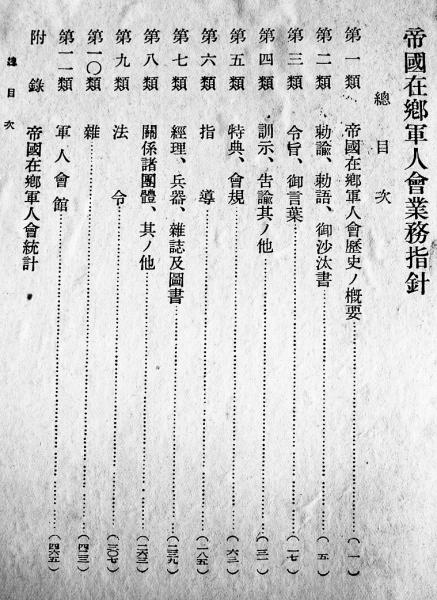 帝國在鄉軍人會業務指針
總目次
第一類 帝國在鄉軍人會歷史ノ槪要……(一)
第二類 勅諭、勅語、御沙汰書……(五)
第三類 令旨、御言葉……(一七)
第四類 訓示、告諭其ノ他……(三一)
第五類 特典、會規……(六三)
第六類 指導……(一八五)
第七類 經理、兵器、雜誌及圖書……(二三九)
第八類 關係諸團體、其ノ他……(二六三)
第九類 法令……(三〇七)
第一〇類 雜……(四三三)
第一一類 軍人會館……(四六五)
附錄 帝國在鄉軍人會統計
總目次